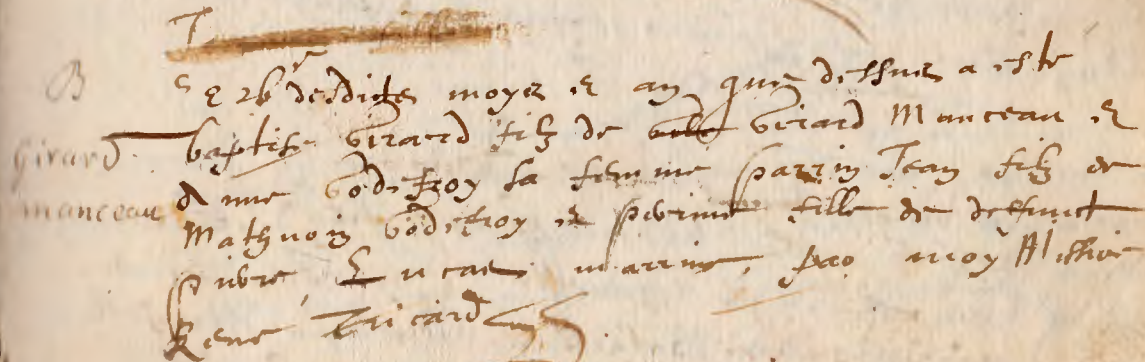 B
Girard
manceau
Le 26e desdits moys et an que dessus a este
baptise Girard filz de Girard Manceau et
Anne Godefroy sa femme parrin Jean filz de
Mathurin Godefroy et perrine fille de deffunct
pierre Lucas marrine, par moy Missire
Rene Tricard